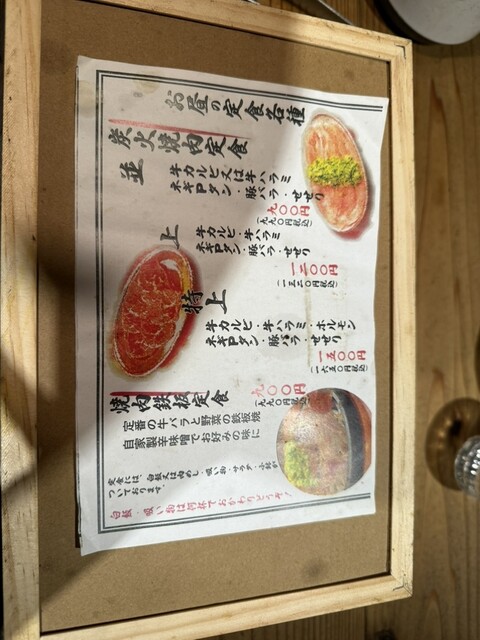 お昼の定食各種
炭火焼肉定食
並
牛カルビ又は牛ハラミ
ネギPタン・豚バラ・せせり
九〇〇円
(九九〇円税込)
上
牛カルビ・牛ハラミ
ネギPタン・豚バラ・せせり
一二〇〇円
(一三二〇円税込)
特上
牛カルビ・牛ハラミ・ホルモン
ネギPタン・豚バラ・せせり
一五〇〇円
(一六五〇円税込)
焼肉鉄板定食
九〇〇円
(九九〇円税込)
定番の牛バラと野菜の鉄板焼
自家製辛味噌でお好みの味に
定食には、白飯又は肉めし・吸い物・サラダ・小鉢が
ついております。
白飯・吸い物は何杯でもおかわりどうぞ!